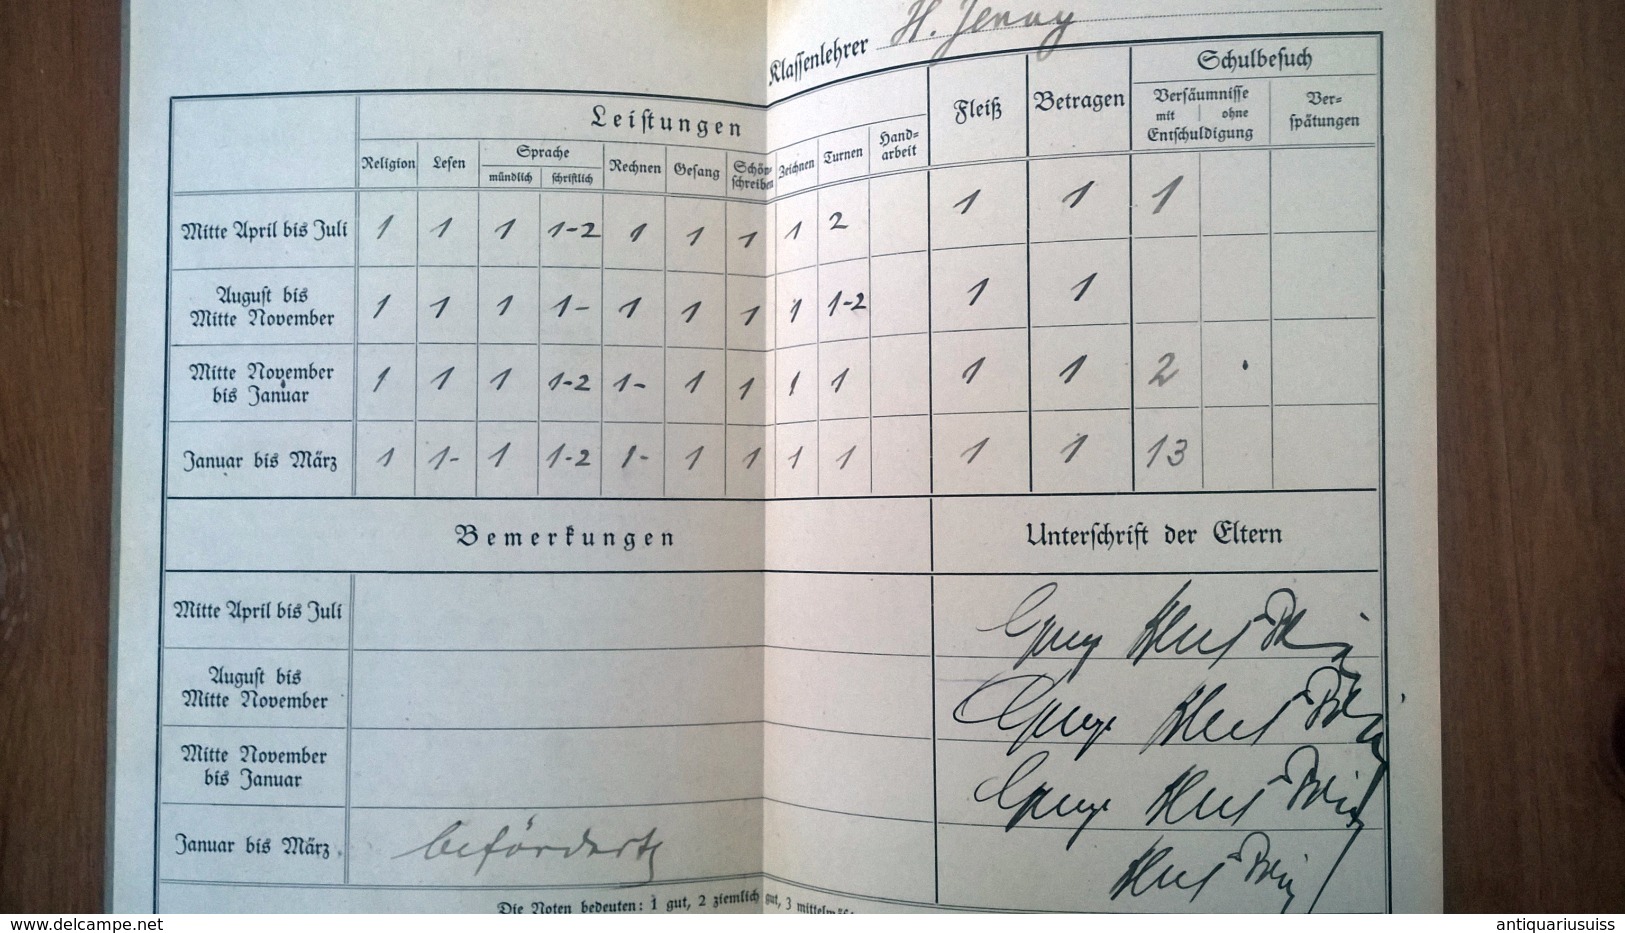 Klassenlehrer H. Jenny
Leistungen Fleiß Betragen Schulbesuch
Religion Lesen Sprache Rechnen Gesang Schön-schreiben Zeichnen Turnen Hand-arbeit Versäumnisse Ver-spätungen
mündlich schriftlich mit ohne
Entschuldigung
Mitte April bis Juli 1 1 1 1-2 1 1 1 1 2 1 1 1
August bis
Mitte November 1 1 1 1- 1 1 1 1 1-2 1 1
Mitte November
bis Januar 1 1 1 1-2 1- 1 1 1 1 1 1 2 .
Januar bis März 1 1- 1 1-2 1- 1 1 1 1 1 1 13
Bemerkungen Unterschrift der Eltern
Mitte April bis Juli
August bis
Mitte November
Mitte November
bis Januar
Januar bis März befördert
Die Noten bedeuten: 1 gut, 2 ziemlich gut, 3
delcampe.net
antiquariusuiss